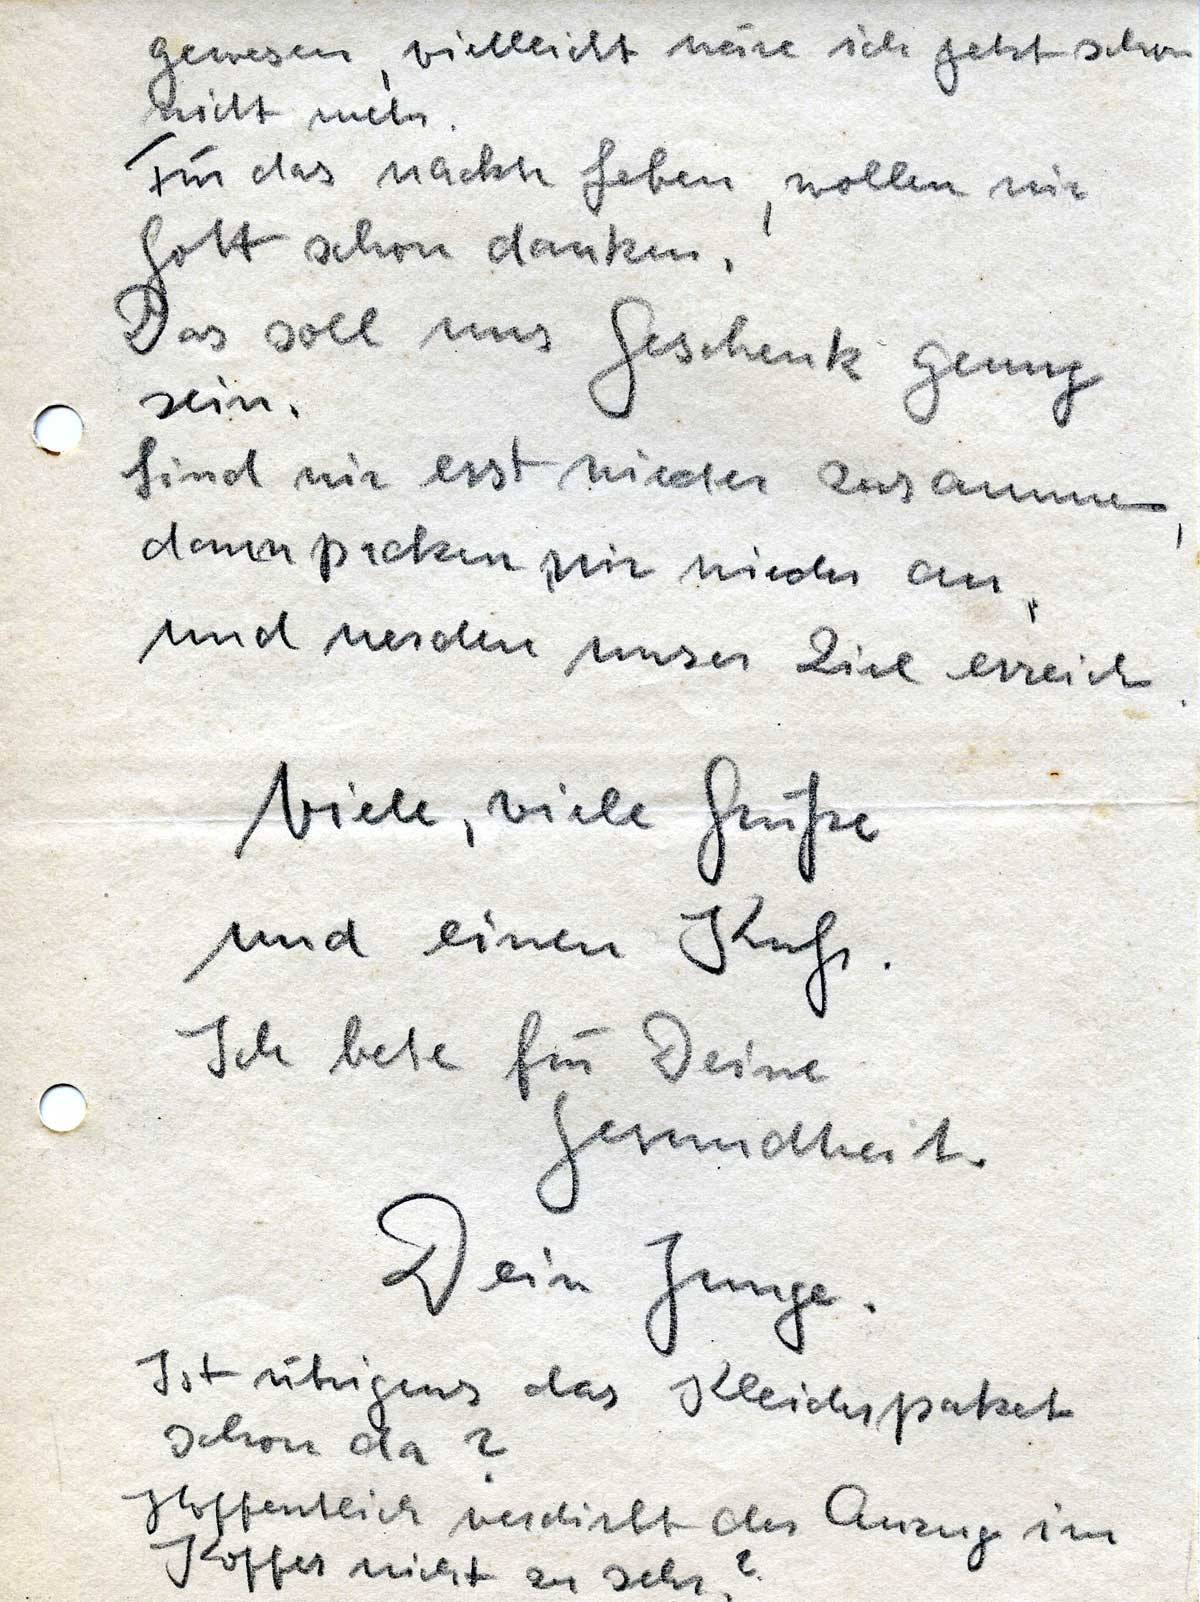 gewesen, vielleicht wäre ich jetzt schon
nicht mehr.
Für das nackte Leben, wollen wir
Gott schon danken.
Das soll uns Geschenk genug
sein.
Sind wir erst wieder zusammen,
dann packen wir wieder an,
und werden unser Ziel erreich.
Viele, viele Grüße
und einen Kuß.
Ich bete für Deine
Gesundheit.
Dein Junge.
Ist übrigens das Kleiderpaket
schon da?
Hoffentlich verdirbt der Anzug im
Koffer nicht zu sehr.?